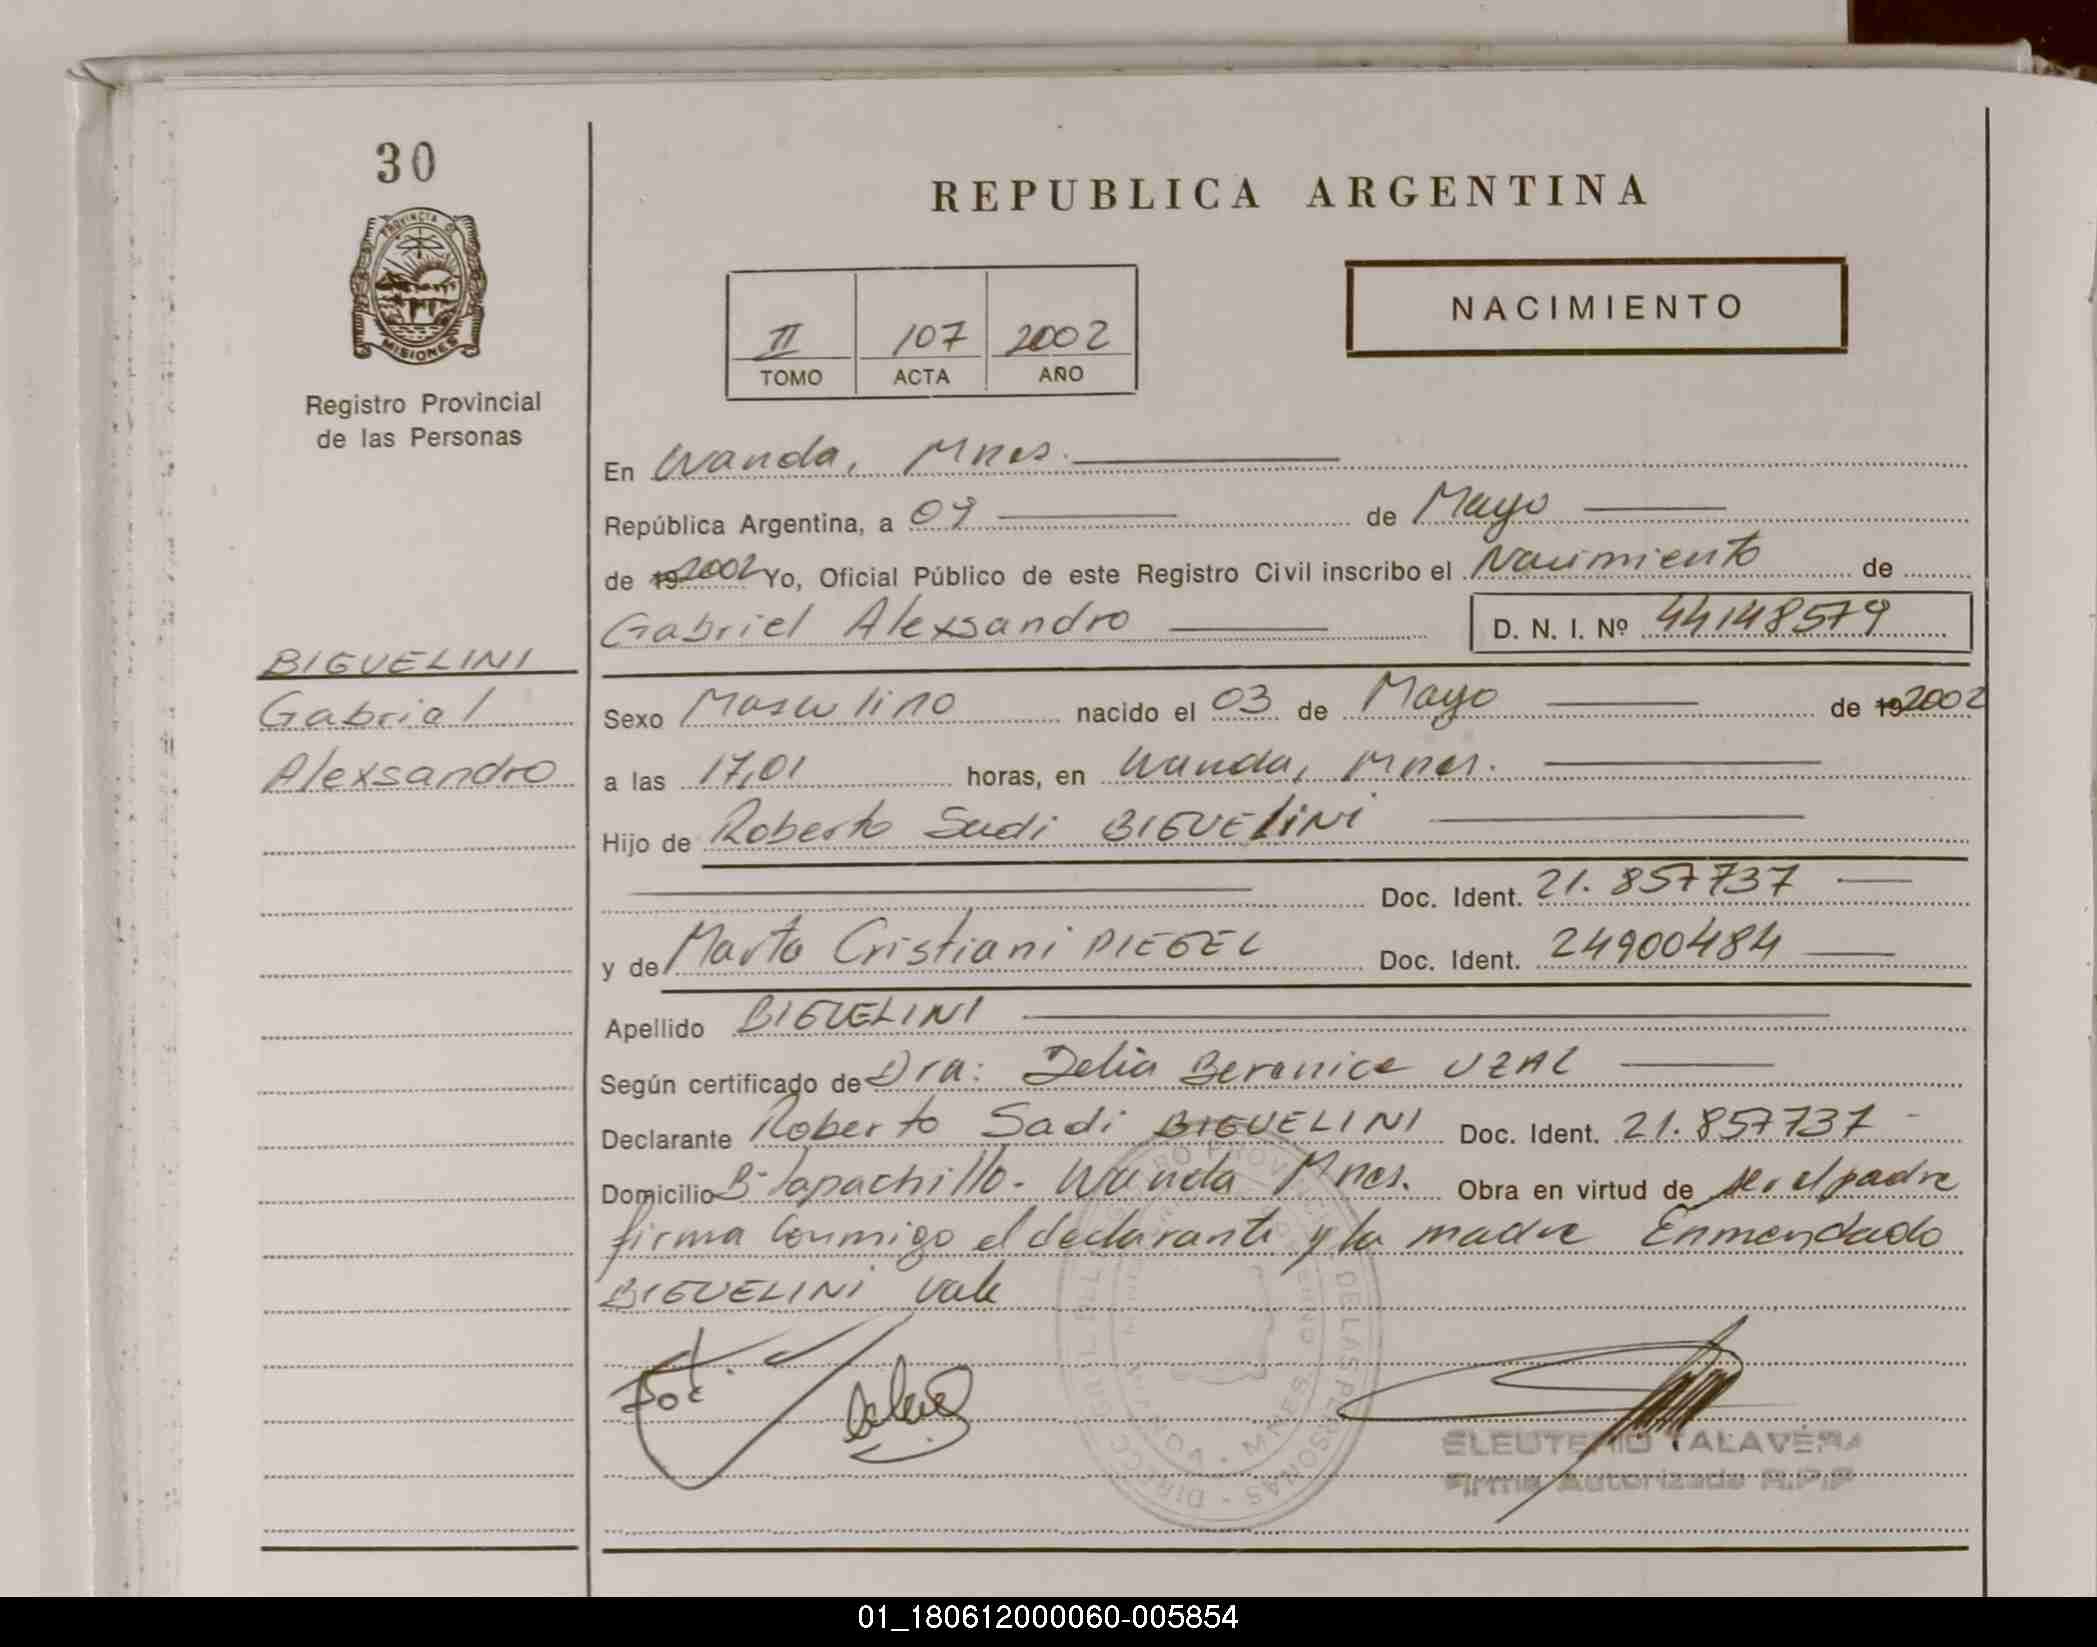 30
PROVINCIA DE
MISIONES
Registro Provincial
de las Personas
REPUBLICA ARGENTINA
NACIMIENTO
II 107 2002
TOMO ACTA AÑO
En Wanda, Mnes.
República Argentina, a 09 de Mayo
de 19 2002 Yo, Oficial Público de este Registro Civil inscribo el Nacimiento de
Gabriel Alexsandro D. N. I. Nº 44148579
BIGUELINI
Gabriel
Alexsandro
Sexo Masculino nacido el 03 de Mayo de 19 2002
a las 17,01 horas, en Wanda, Mnes.
Hijo de Roberto Sadi BIGUELINI
Doc. Ident. 21.857737
y de Marta Cristiani DIEGEL Doc. Ident. 24900484
Apellido BIGUELINI
Según certificado de Dra: Delia Berenice UZAL
Declarante Roberto Sadi BIGUELINI Doc. Ident. 21.857737
Domicilio Bº Lapachillo. Wanda Mnes. Obra en virtud de ser el padre
firma conmigo el declarante y la madre Enmendado
BIGUELINI Vale
ELEUTERIO TALAVERA
Firma Autorizada R.P.P
01_180612000060-005854